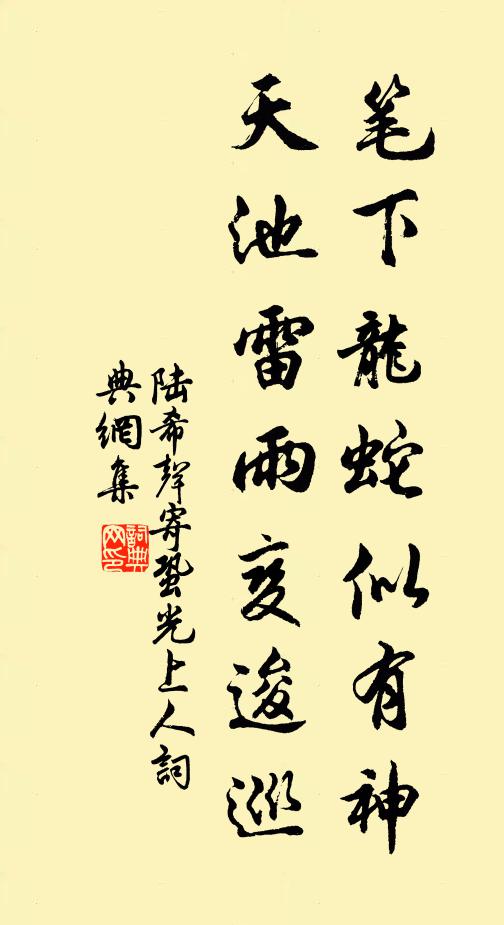 笔下龍蛇似有神
天池雷雨变逡巡
陸希聲寄蛩光上人詞
典網集
詞典
网印